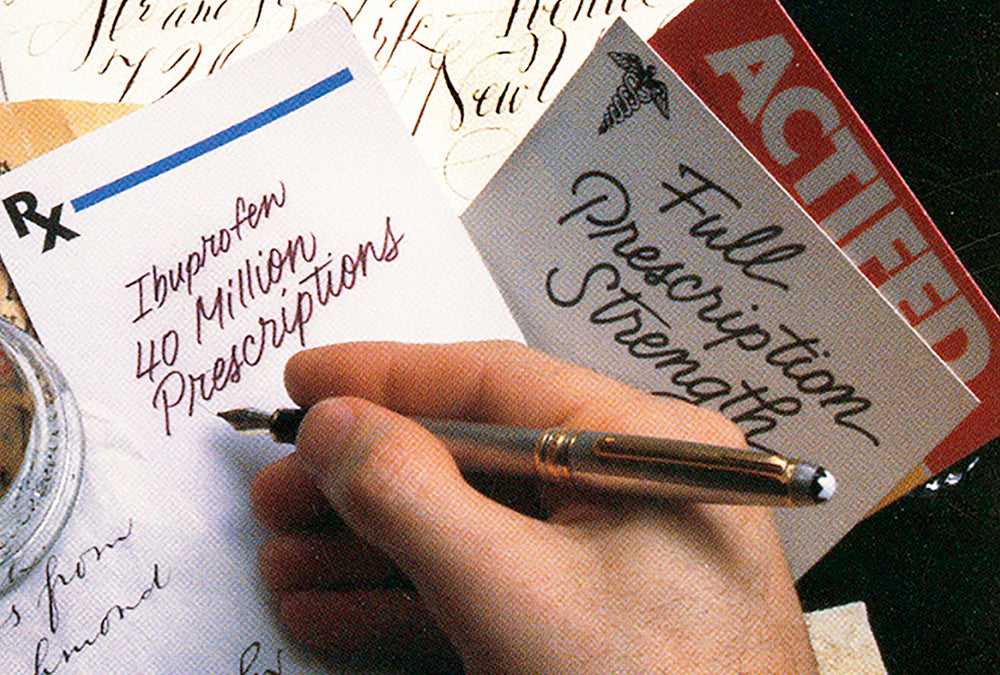 Avenue
New
Rx
Ibuprofen
40 Million
Prescriptions
Full
Prescription
Strength
ACTIFED
from